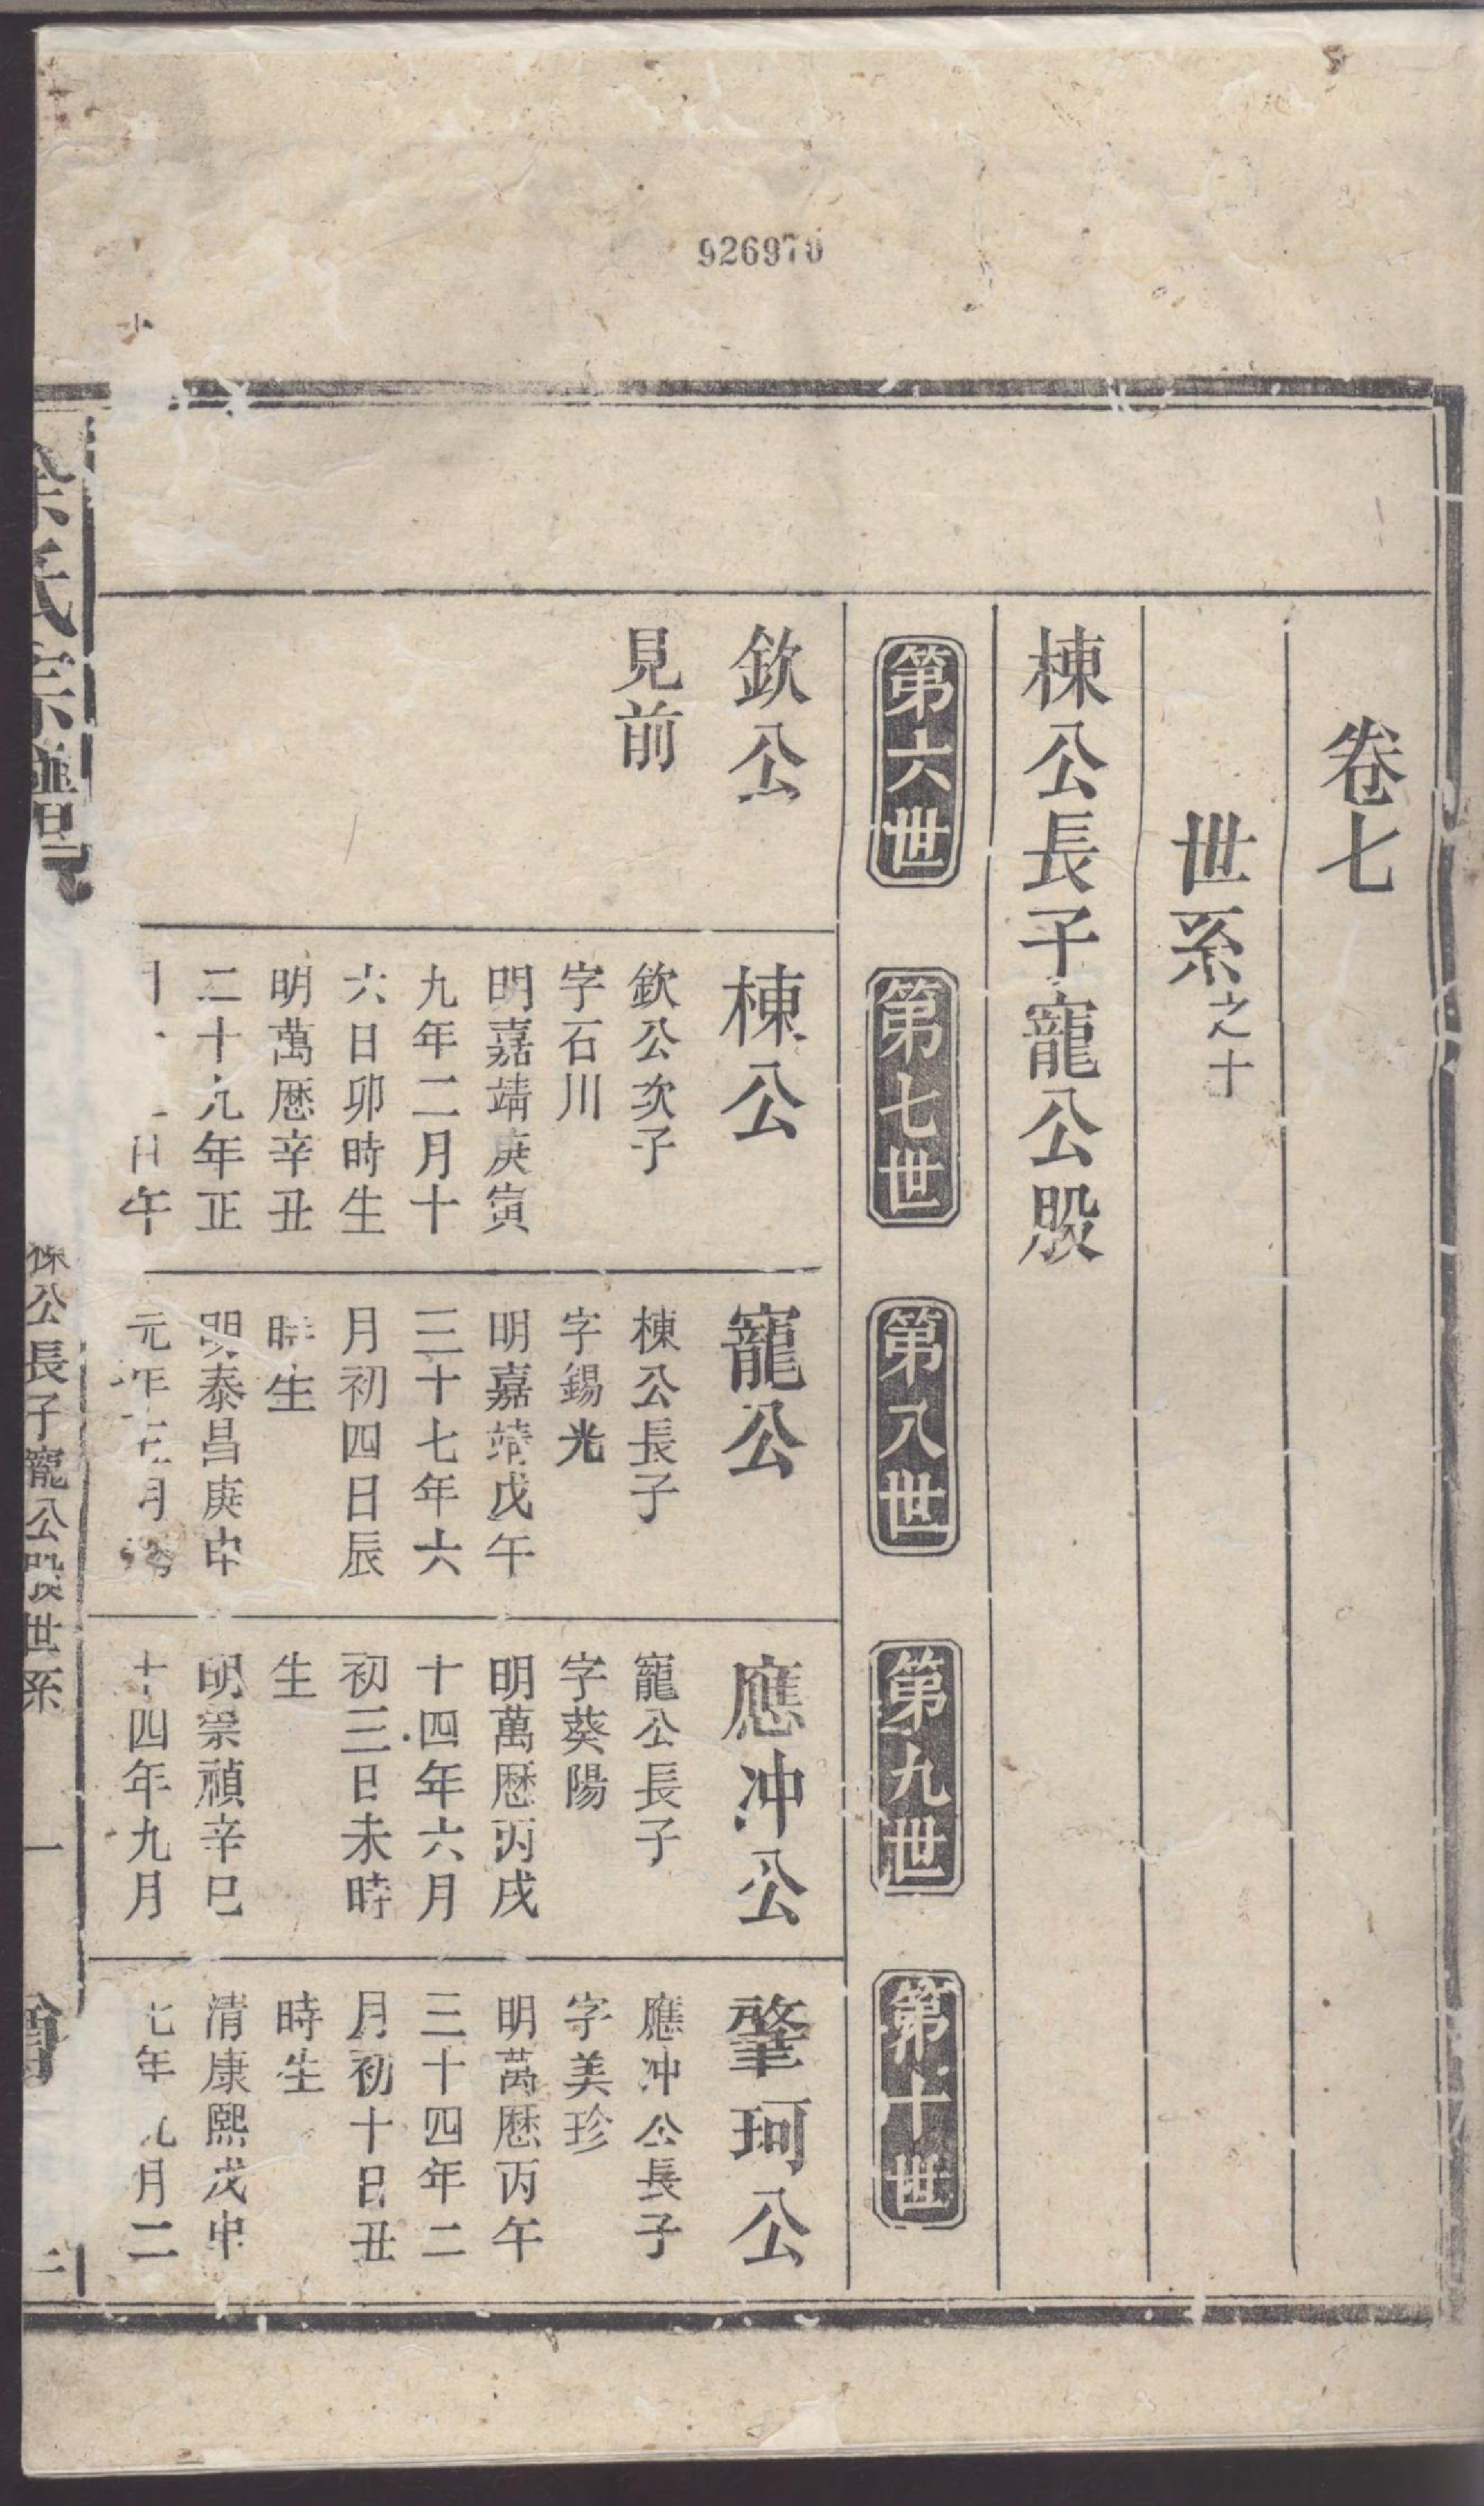 926970
卷七
世系之十
棟公長子寵公股
第六世
第七世
第八世
第九世
第十世
欽公
見前
棟公
欽公次子
字石川
明嘉靖庚寅
九年二月十
六日卯時生
明萬厯辛丑
二十九年正
日午
寵公
棟公長子
字錫光
明嘉靖戊午
三十七年六
月初四日辰
時生
明泰昌庚申
元年 月
應冲公
寵公長子
字葵陽
明萬厯丙戌
十四年六月
初三日未時
生
明崇禎辛巳
十四年九月
肇珂公
應冲公長子
字美珍
明萬厯丙午
三十四年二
月初十日丑
時生
清康熙戊申
七年九月二
氏宗譜
棟公長子寵公股世系
一